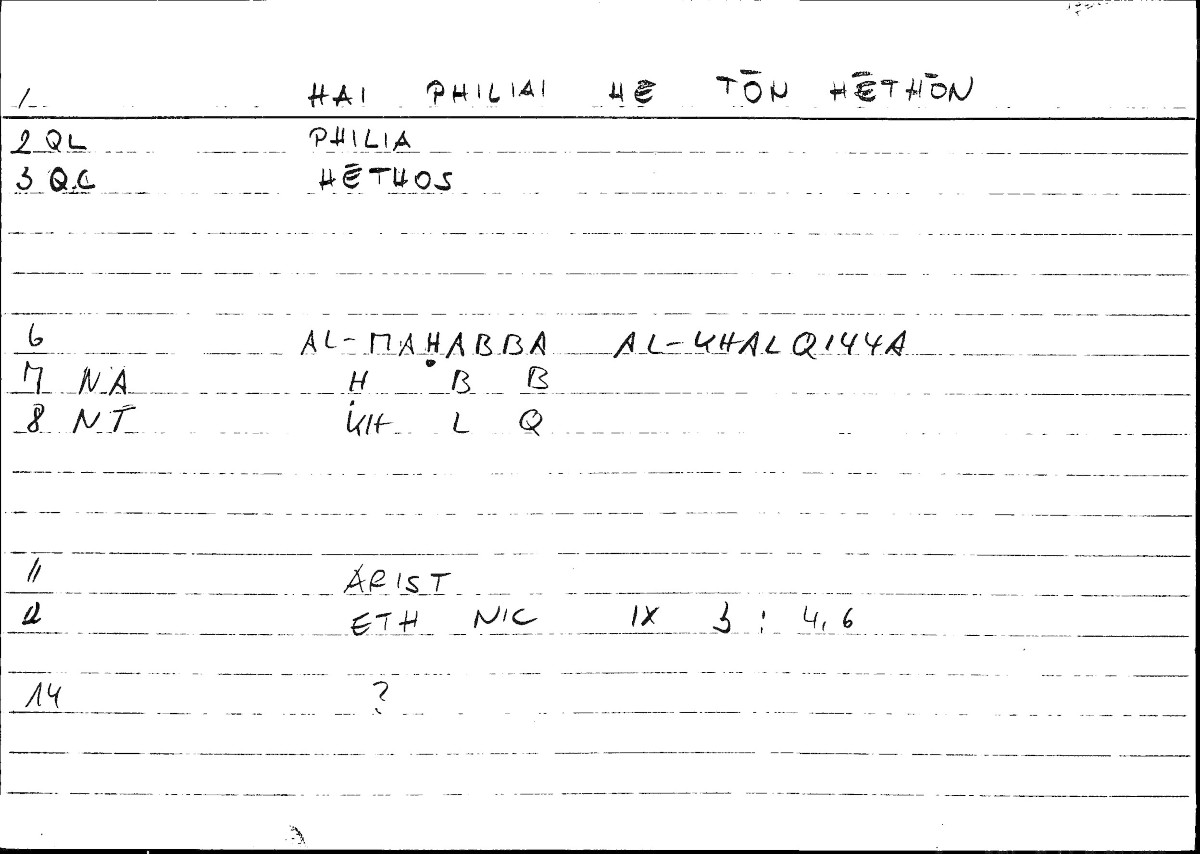 1 HAI PHILIAI HE TŌN HĒTHŌN
2 QL PHILIA
3 QC HĒTHOS
6 AL-MAḤABBA AL-KHALQIYYA
7 NA Ḥ B B
8 NT KH L Q
11 ARIST
12 ETH NIC IX 3 : 4,6
14 ?